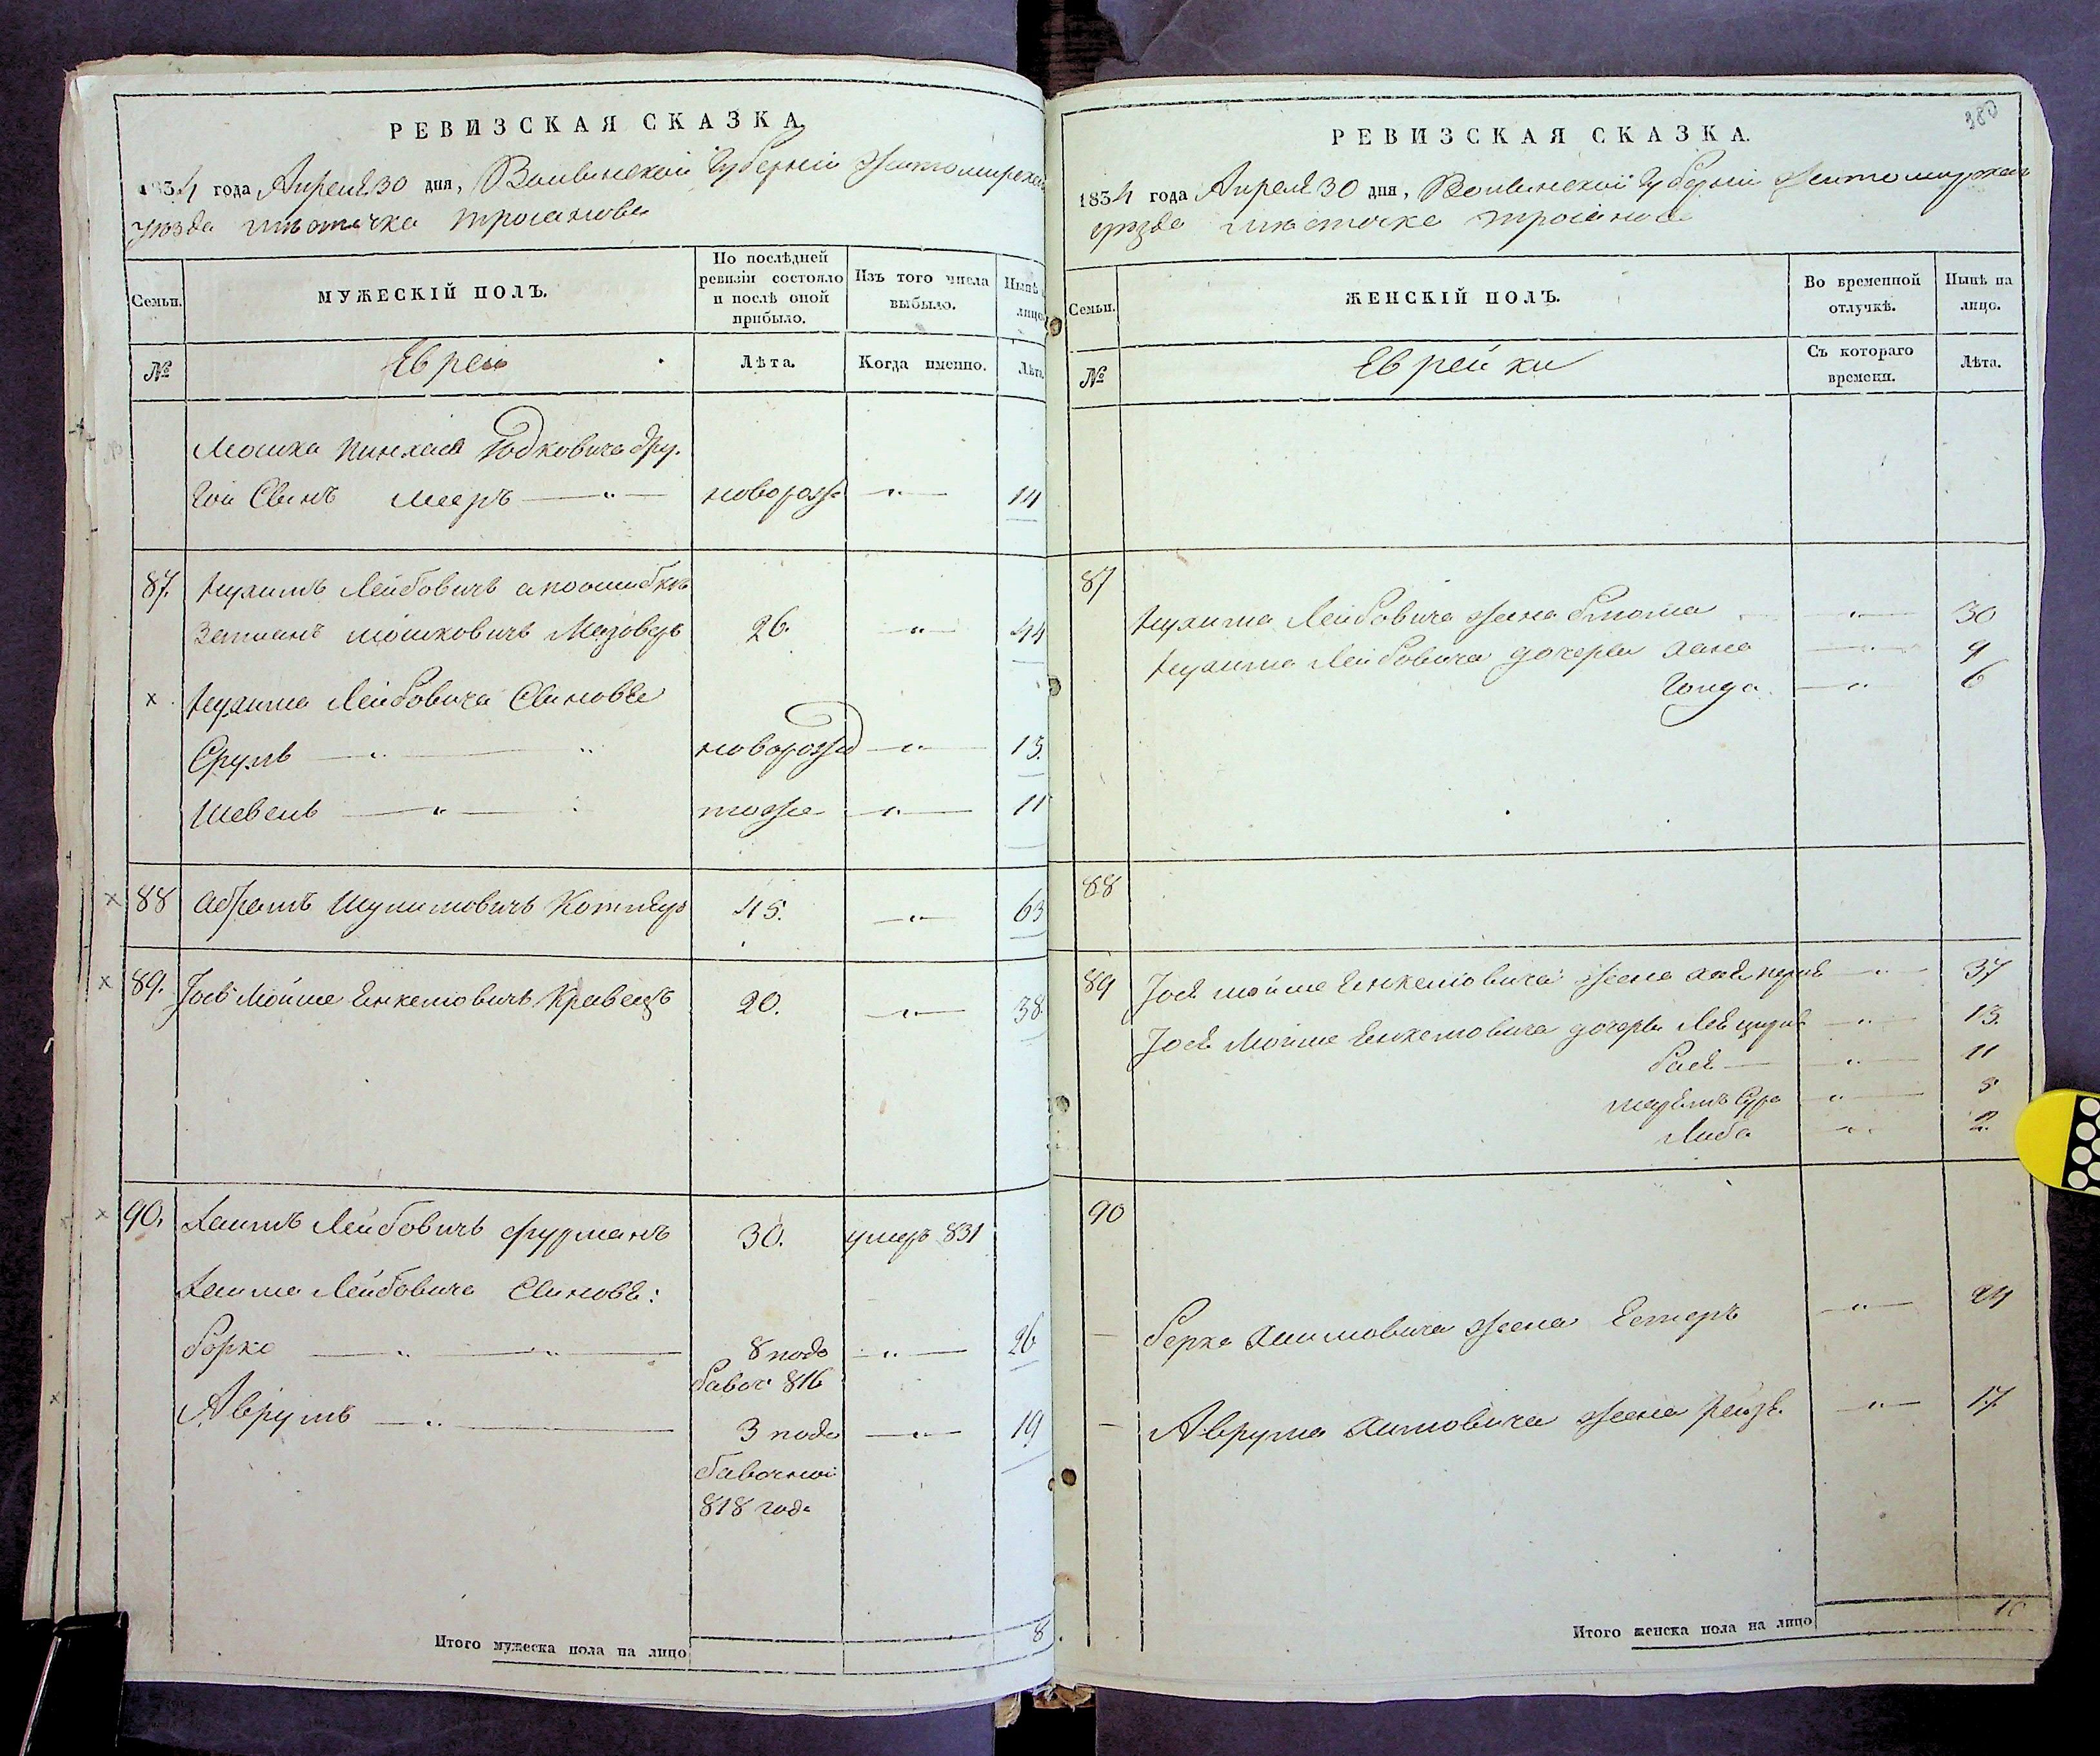 РЕВИЗСКАЯ СКАЗКА.
1834 года Апреля 30 дня, Волынской Губерніи Житомирскаго
уезда местечка Троianова
Семьи.
МУЖЕСКІЙ ПОЛЪ.
По послѣдней ревизіи состояло и послѣ оной прибыло.
Изъ того числа выбыло.
Нынѣ на лицо.
№
Евреи
Лѣта.
Когда именно.
Лѣта.
Мошка Пинхаса Юдковича дру.
гой Сынъ Мееръ — " — новорож — " — 14
87. Нухимъ Лейбовичъ а поошибкѣ
Зельманъ Мошковичъ 26. — " — 44
х Нухима Лейбовича Сыновье
Сруль — " — " новорожд — " — 13.
Шевель — " — тоже — " — 11
х 88 Абрамъ Шулимовичъ 45. — " — 63
х 89. Іось Мойше Енкелiовичъ Кравецъ 20. — " — 38.
х 90. Хаимъ Лейбовичъ Фурманъ 30. умеръ 831
Хаима Лейбовича Сыновѣ:
Борко — " — " — 8 подо — " — 26
бавоч 816
Аврумъ — " — 3 подо — " — 19
бавочной
818 года
Итого мужеска пола на лицо 8
380
РЕВИЗСКАЯ СКАЗКА.
1834 года Апреля 30 дня, Волынской Губерніи Житомирскаго
уезда местечка Троianова
Семьи.
ЖЕНСКІЙ ПОЛЪ.
Во временной отлучкѣ.
Нынѣ на лицо.
№
Еврейки
Съ котораго времени.
Лѣта.
87
Нухима Лейбовича жена — " — 30
Нухима Лейбовича дочери Хана — " — 9
— " — 6
88
89 Іося Мойше Енкелiовича жена — " — 37
Іося Мойше Енкелiовича дочери — " — 13.
Бася — " — 11
Сура — " — 5
Либа — " — 2.
90
— Берка Хаимовича жена Естеръ — " — 24
— Аврума Хаимовича жена Рейзя. — " — 17.
Итого женска пола на лицо 10